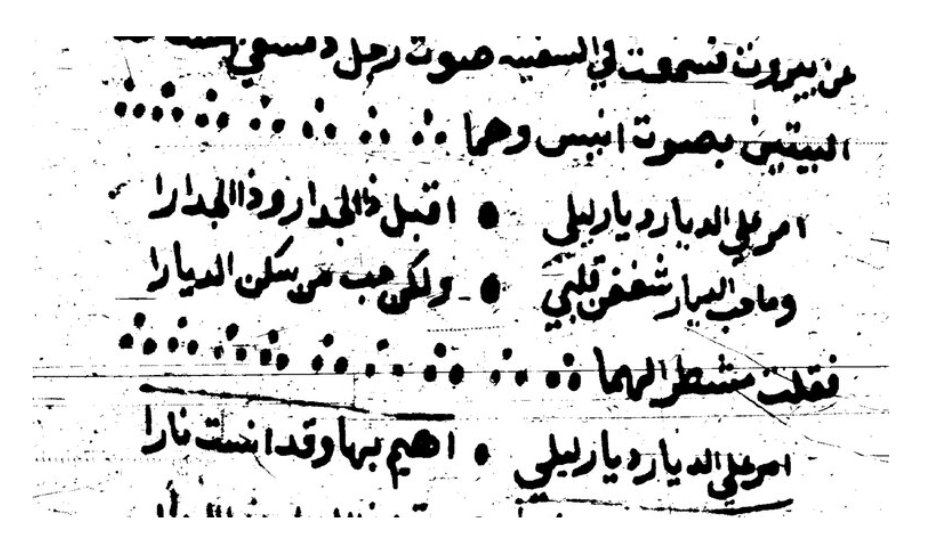 عن بيروت فسمعت في السفينه صوت رجل دمشقي
البيتين بصوت انيس وهما
امر على الديار ديار ليلي • اقبل ذا الجدار وذا الجدارا
وما حب الديار شغفن قلبي • ولكن حب من سكن الديارا
فقلت مشطرا لهما
امر على الديار ديار ليلي • اهيم بها وقد انست نارا